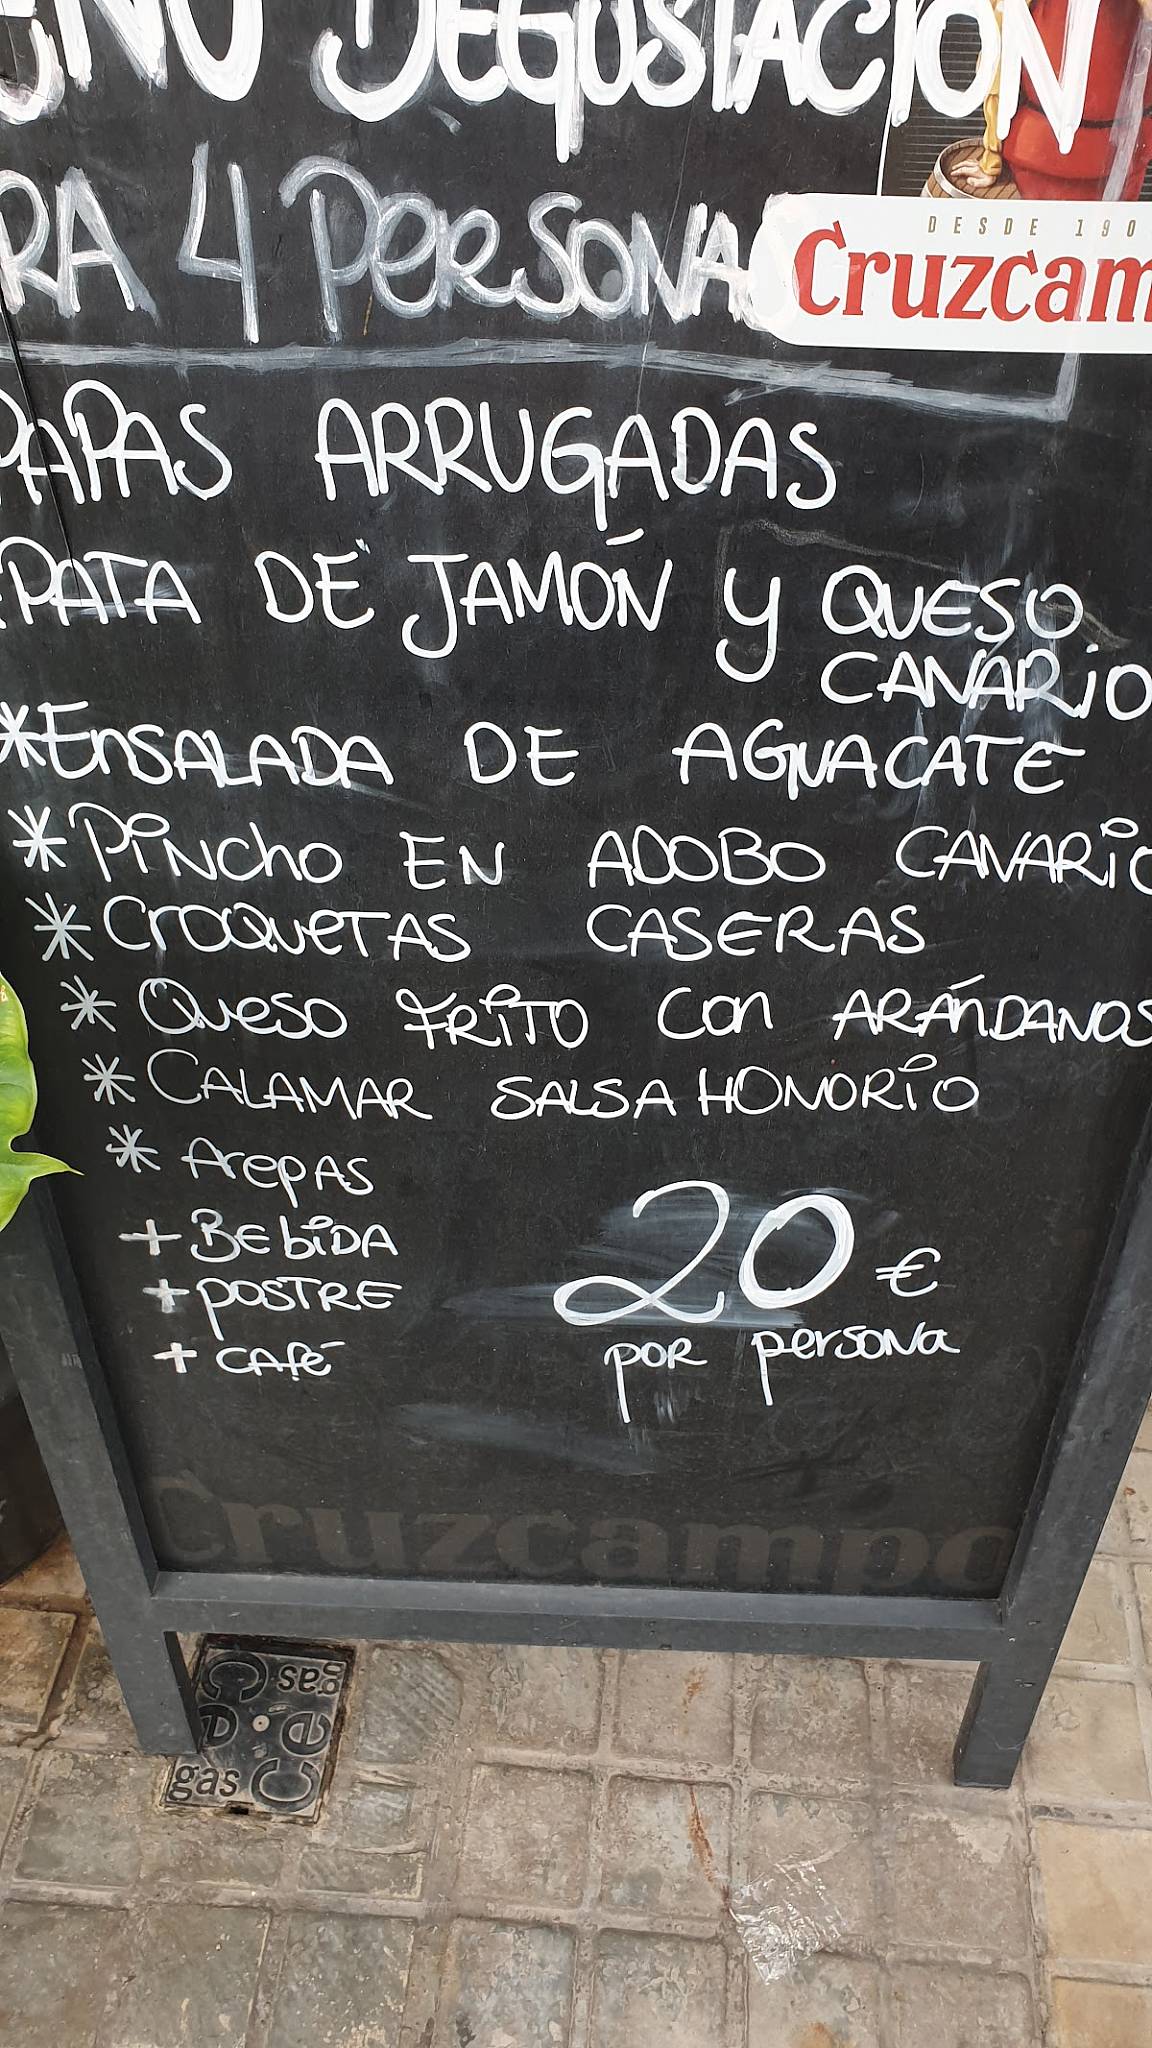 ENÚ DEGUSTACIÓN
RA 4 PERSONAS
DESDE 190
Cruzcam
PAPAS ARRUGADAS
PATA DE JAMÓN Y QUESO
CANARIO
*ENSALADA DE AGUACATE
*PINCHO EN ADOBO CANARIO
*CROQUETAS CASERAS
*QUESO FRITO CON ARÁNDANOS
*CALAMAR SALSA HONORIO
*AREPAS
+BEBIDA
+POSTRE
+CAFÉ
20 €
por persona
Cruzcampo
gas
gas